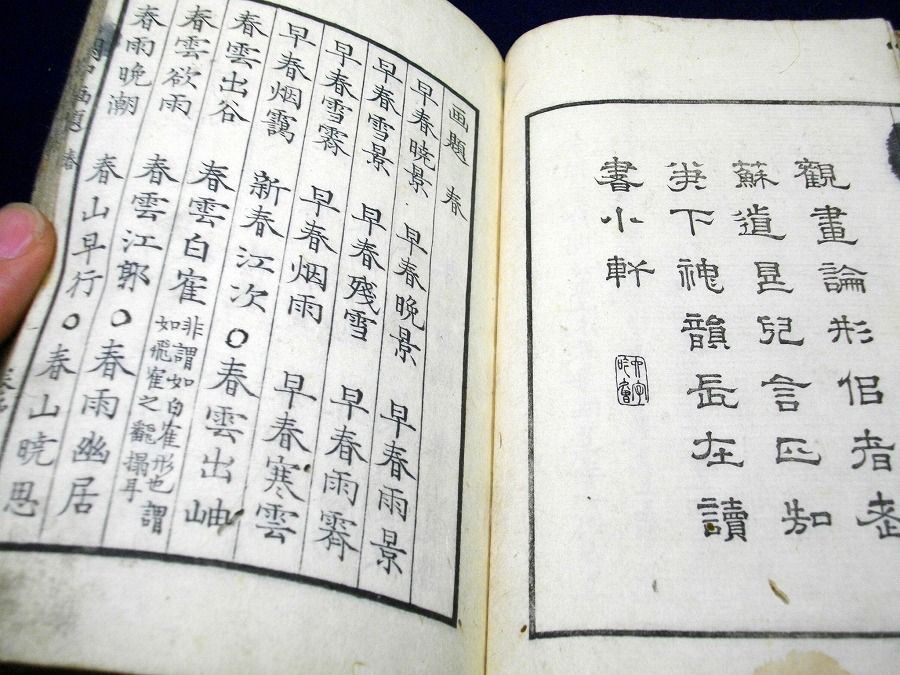 觀畫論形佀者老
蘇道是兒言知
下神韻長在讀
書小軒
画題 春
早春暁景 早春晚景 早春雨景
早春雪景 早春殘雪 早春雨霽
早春雪霽 早春烟雨 早春寒雲
早春烟靄 新春江次 〇春雲出岫
春雲出谷 春雲白寉 非謂如白寉形也謂
如飛寉之翻搨耳
春雲欲雨 春雲江郭 〇春雨幽居
春雨晚潮 春山早行 〇春山暁思
画題 春